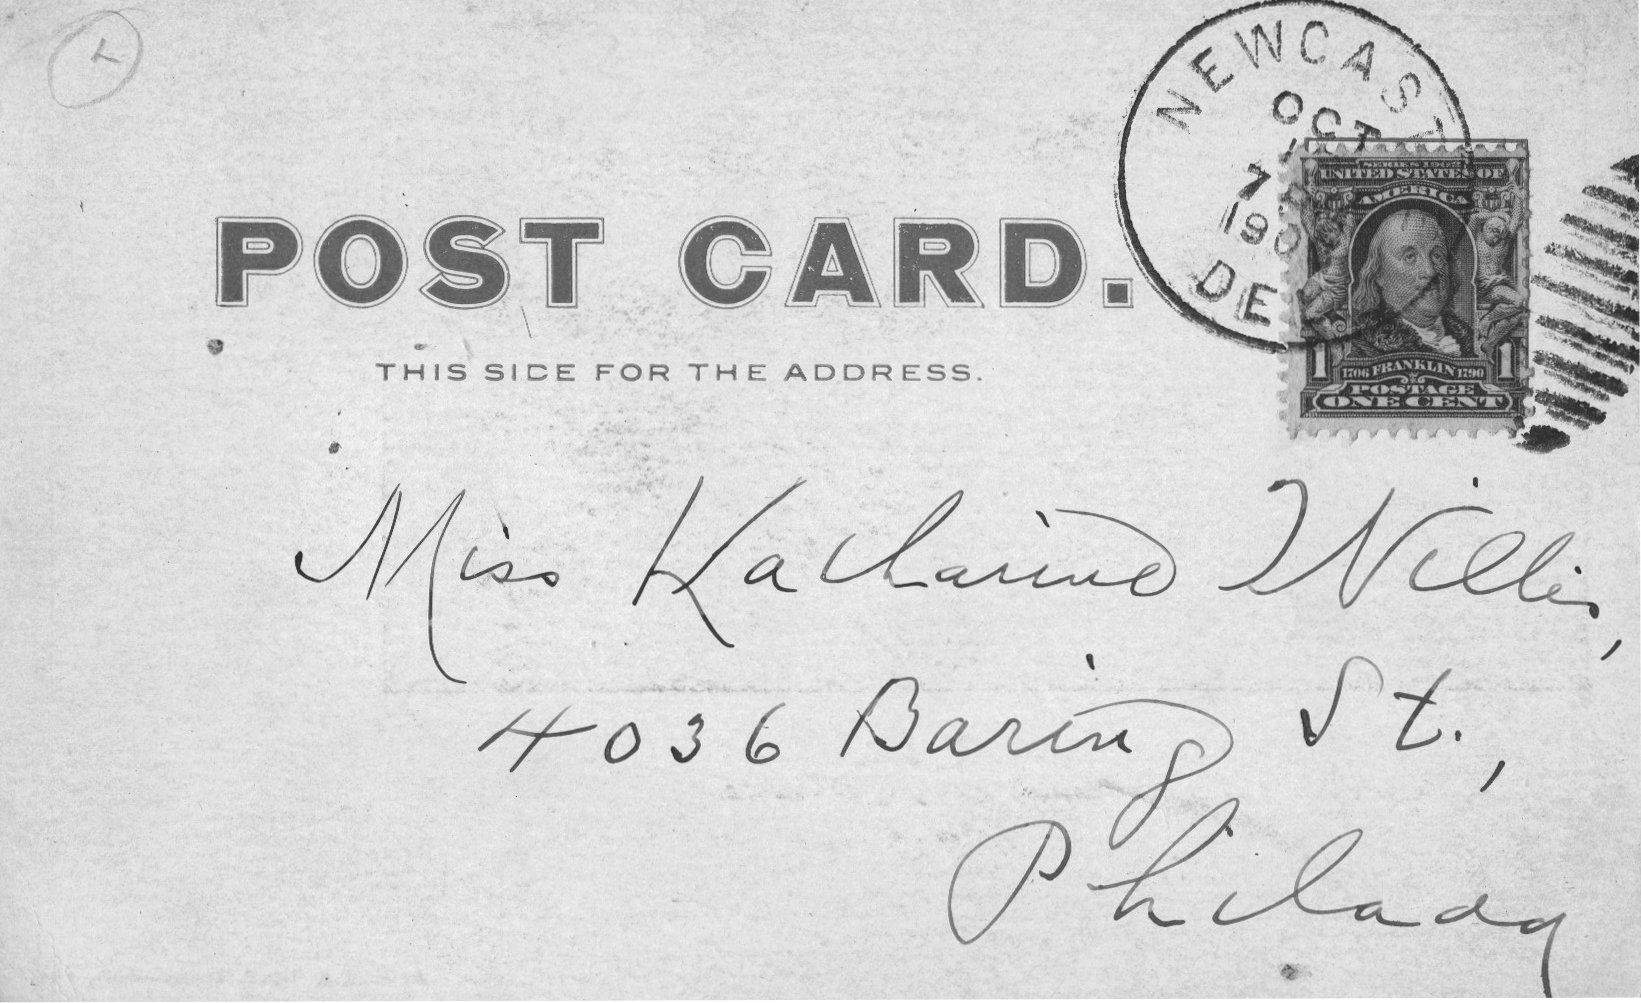 NEWCAST
OCT
7
190
DE
SERIES 1902
UNITED STATES OF
AMERICA
1 1706 FRANKLIN 1790 1
POSTAGE
ONE CENT
POST CARD.
THIS SIDE FOR THE ADDRESS.
Miss Katharine Willis,
4036 Baring St.,
Philada